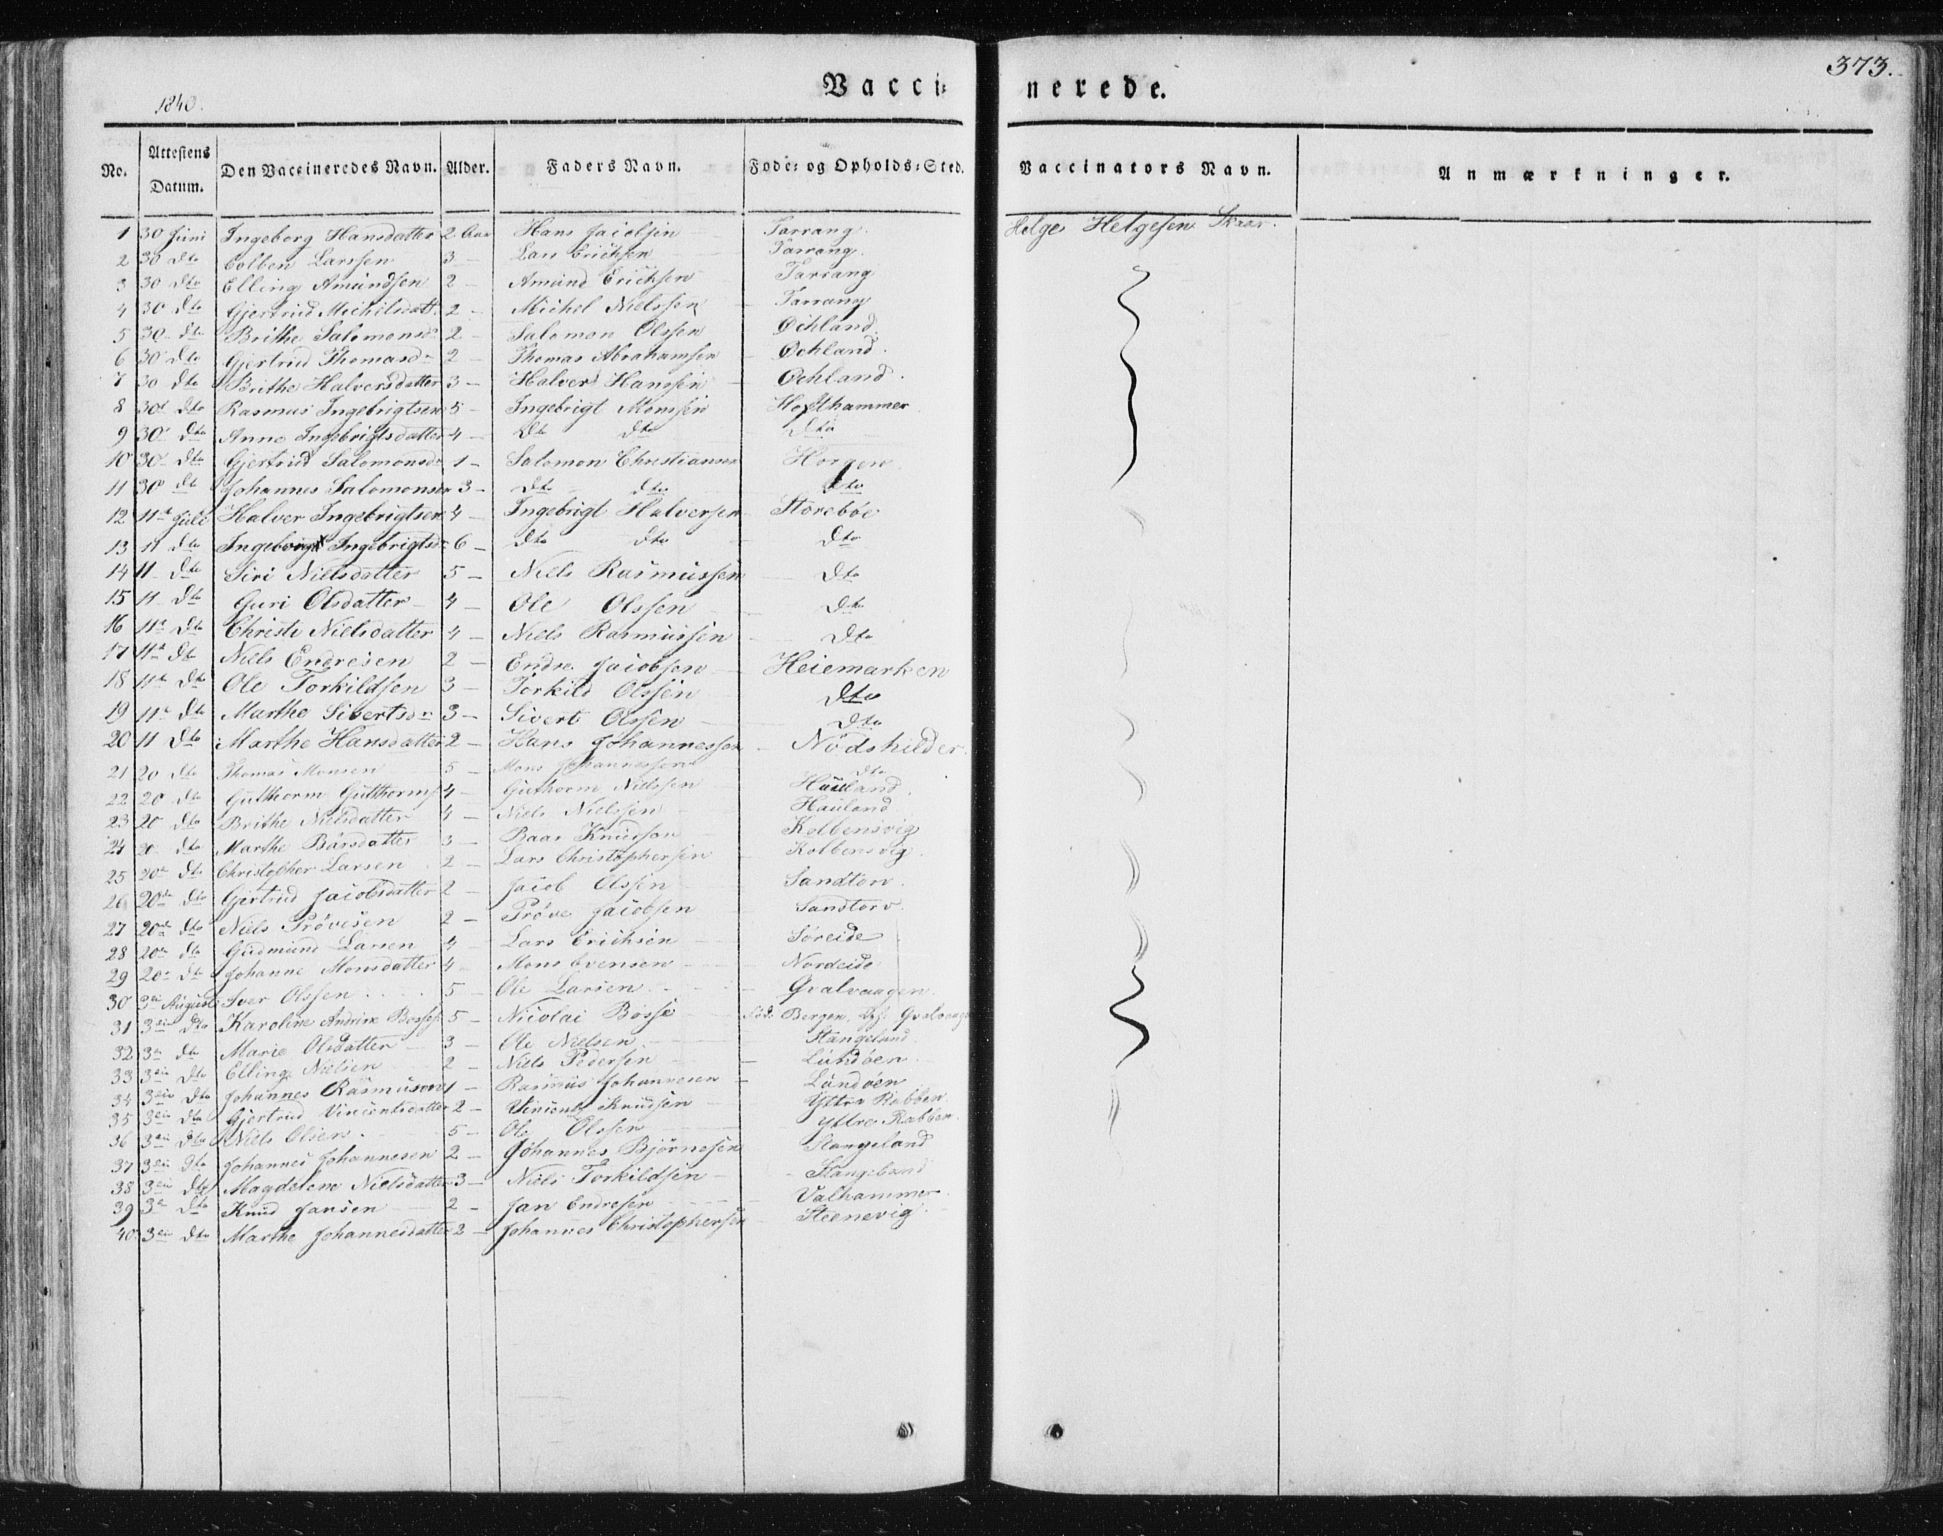 373.
1840.
Vacci= nerede.
No. Attestens Datum. Den Vaccineredes Navn. Alder. Faders Navn. Føde= og Opholds=Sted. Vaccinators Navn. Anmærkninger.
1 30 Juni Ingeborg Hansdatter 2 Aar Hans Jacobsen Tarrang. Helge Helgesen Skaar.
2 30 dto Colben Larssen 3 — Lars Erichsen Tarrang.
3 30 dto Elling Amundsen 2 — Amund Erichsen Tarrang
4 30 dto Gjertrud Michelsdatt. 2 — Michel Nielssen Tarrang
5 30 dto Brithe Salomonsd. 2 — Salomon Olssen Øchland.
6 30 dto Gjertrud Thomasd. 2 — Thomas Abrahamsen Øchland.
7 30 dto Brithe Halversdatter 3 — Halver Hanssen Øchland.
8 30 dto Rasmus Ingebrigtsen 5 — Ingebrigt Monssen Hofthammer
9 30 dto Anne Ingebrigtsdatter 4 — Dto dto dto
10 30 dto Gjertrud Salomonsd. 1 — Salomon Christiansen Horgen
11 30 dto Johannes Salomonsen 3 — dto dto dto
12 11t Juli Halver Ingebrigtsen 4 — Ingebrigt Halversen Storebøe
13 11 dto Ingeborg Ingebrigtsd. 6 — dto dto dto
14 11 dto Siri Nielsdatter 5 — Niels Rasmussen dto
15 11 dto Guri Olsdatter 4 — Ole Olssen dto
16 11t dto Christi Nielsdatter 4 — Niels Rasmussen dto
17 11t dto Niels Endresen 2 — Endre Jacobsen Heiemarken
18 11t dto Ole Torkildsen 3 — Torkild Olssen dto
19 11t dto Marthe Sivertsd. 3 — Sivert Olssen dto
20 11 dto Marthe Hansdatter 2 — Hans Johannessen Nødshilder
21 20 dto Thomas Monsen 5 — Mons Johannessen dto
22 20 dto Gutthorm Gutthorms. 4 — Guthorm Nielssen Hauland.
23 20 dto Brithe Nielsdatter 4 — Niels Nielssen Hauland
24 20 dto Marthe Bårsdatter 3 — Baar Knudsen Kolbensvig
25 20t dto Christopher Larsen 2 — Lars Christophersen Kolbensvig.
26 20t dto Gjertrud Jacobsdatter 2 — Jacob Olssen Sandtorv.
27 20t dto Niels Prøvesen 2 — Prøve Jacobsen Sandtorv.
28 20t dto Gudmund Larsen 4 — Lars Erichsen Søreide
29 20t dto Johanne Monsdatter 4 — Mons Evensen Nordeide
30 3die August Iver Olssen 5 — Ole Larsen Qvalvaagen.
31 3die dto Karoline Andrine Bosse 5 — Nicolai Bosse Fød: Bergen, Oph: Qvalvaage
32 3die dto Marie Olsdatter 3 — Ole Nielsen Stangeland.
33 3die dto Elling Nielsen 2 — Niels Pedersen Lundøen
34 3die dto Johannes Rasmusen 1 — Rasmus Johannesen Lundøen
35 3die dto Gjertrud Vincentsdatter 2 — Vincents Knudsen Yttre Rabben
36 3die dto Niels Olsen 5 — Ole Olssen Yttre Rabben.
37 3die dto Johannes Johannesen 2 — Johannes Bjørnesen Stangeland
38 3die dto Magdelene Nielsdatter 3 — Niels Torkildsen Stangeland
39 3die dto Knud Jansen 2 — Jan Endresen Valhammer
40 3die dto Marthe Johannesdatter 2 — Johannes Christophersen Steenevig.